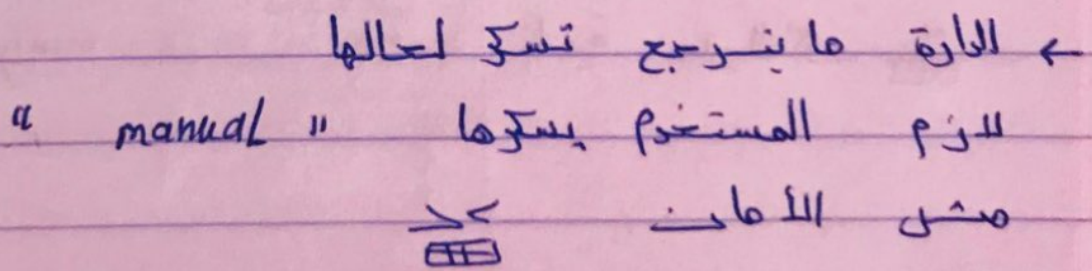 ← الدارة ما بترجع تسكر لحالها
لازم المستخدم يسكرها "manual"
مثل الأمان